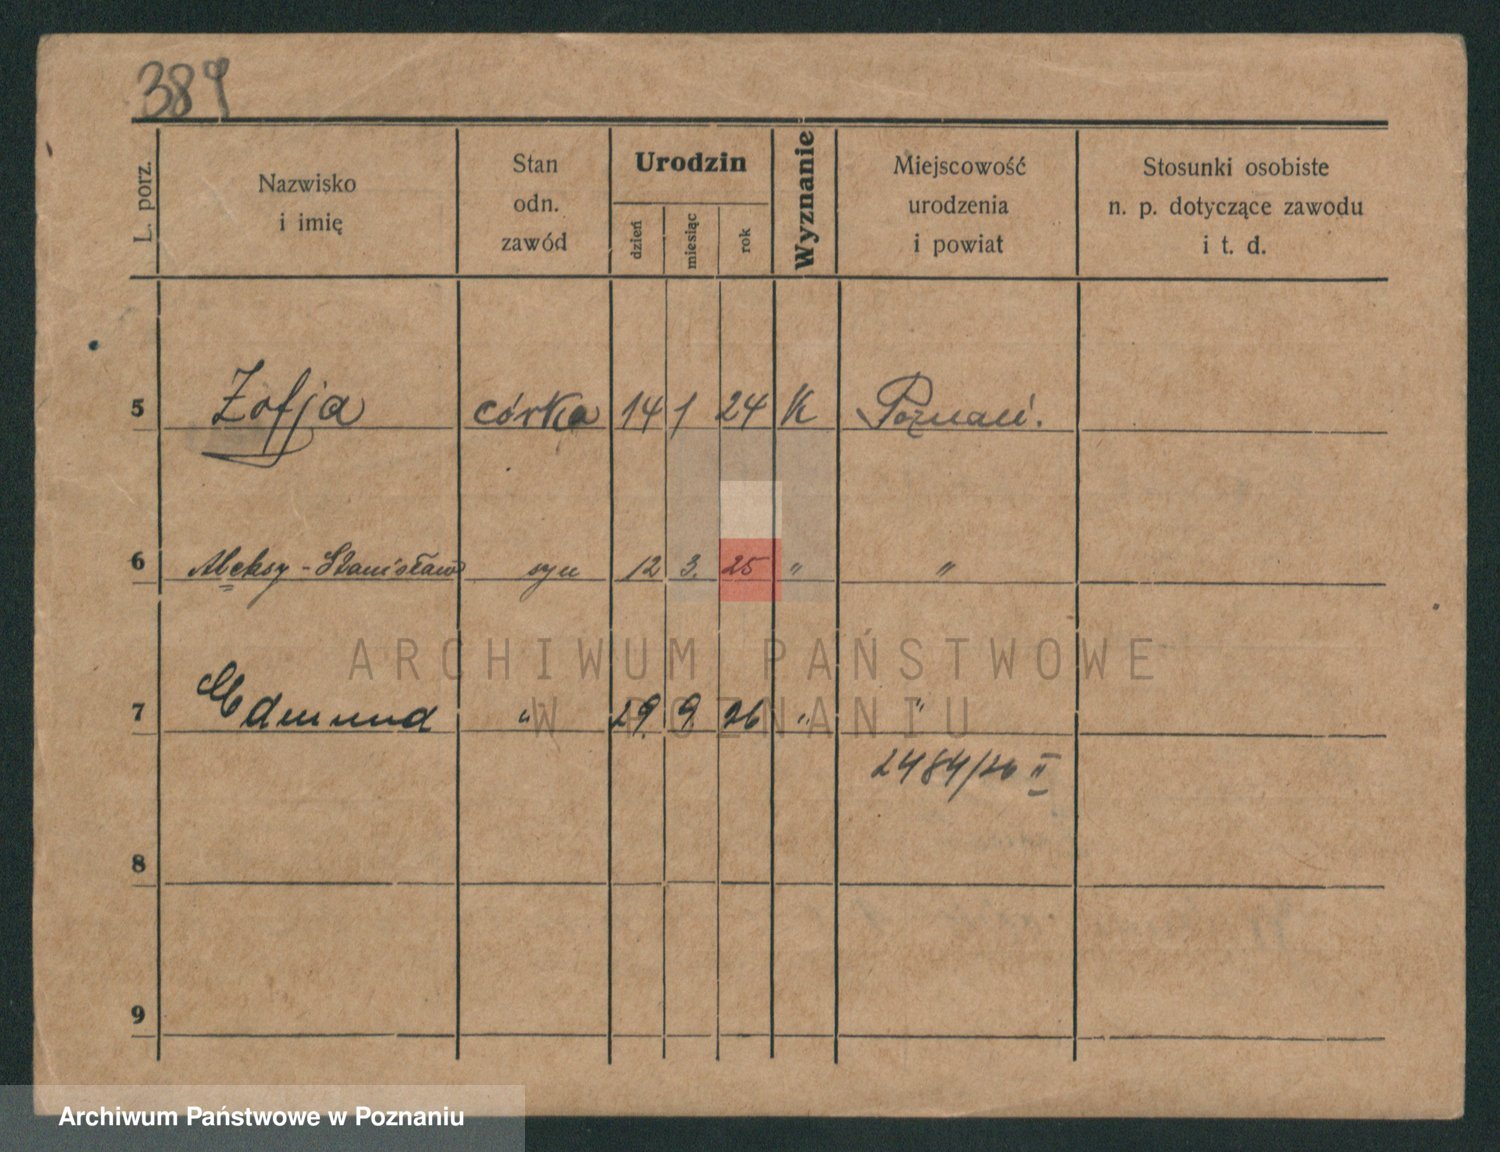 389
L. porz.
Nazwisko
i imię
Stan
odn.
zawód
Urodzin
dzień
miesiąc
rok
Wyznanie
Miejscowość
urodzenia
i powiat
Stosunki osobiste
n. p. dotyczące zawodu
i t. d.
5 Zofja córka 14 1 24 K Poznań.
6 Aleksy - Stanisław syn 12 3. 25 " "
ARCHIWUM PAŃSTWOWE
W POZNANIU
7 Edmund " 29. 9. 26 " "
2484/26 II
8
9
Archiwum Państwowe w Poznaniu